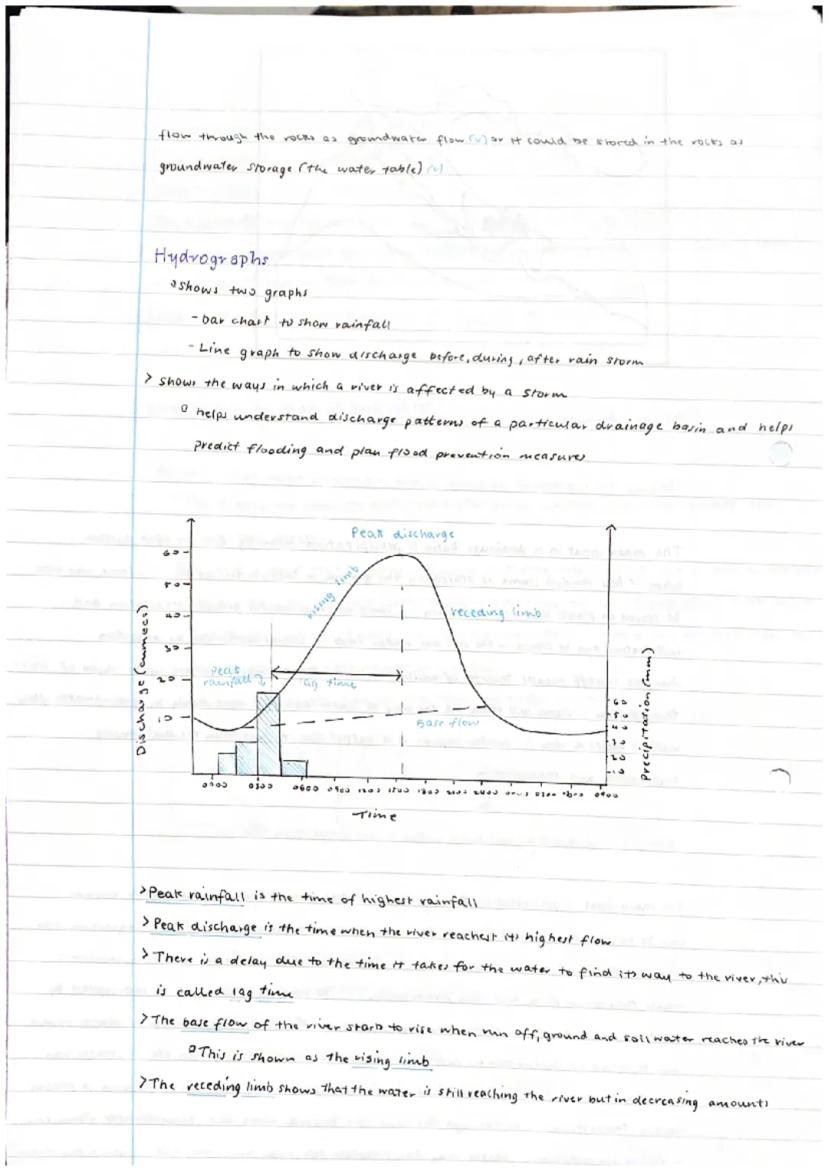 flow through the rocks as groundwater flow (v) or it could be stored in the rocks as
groundwater storage (the water table)
Hydrographs
shows two graphs
- bar chart to show rainfall
- Line graph to show discharge before, during, after rain storm
> shows the ways in which a river is affected by a storm
helps understand discharge patterns of a particular drainage basin and helps
predict flooding and plan flood prevention measures
Peak discharge
rising limb
receding limb
Peak
rainfall
lag time
Base flow
Discharge (cumecs)
60
50
40
30
20
10
Precipitation (mm)
60
50
40
30
20
10
0300 0600 0900 1200
0900
Time
> Peak rainfall is the time of highest rainfall
> Peak discharge is the time when the river reaches it's highest flow
> There is a delay due to the time it takes for the water to find it's way to the river, this
is called lag time
> The base flow of the river starts to rise when run off, ground and soil water reaches the river
This is shown as the rising limb
> The receding limb shows that the water is still reaching the river but in decreasing amounts